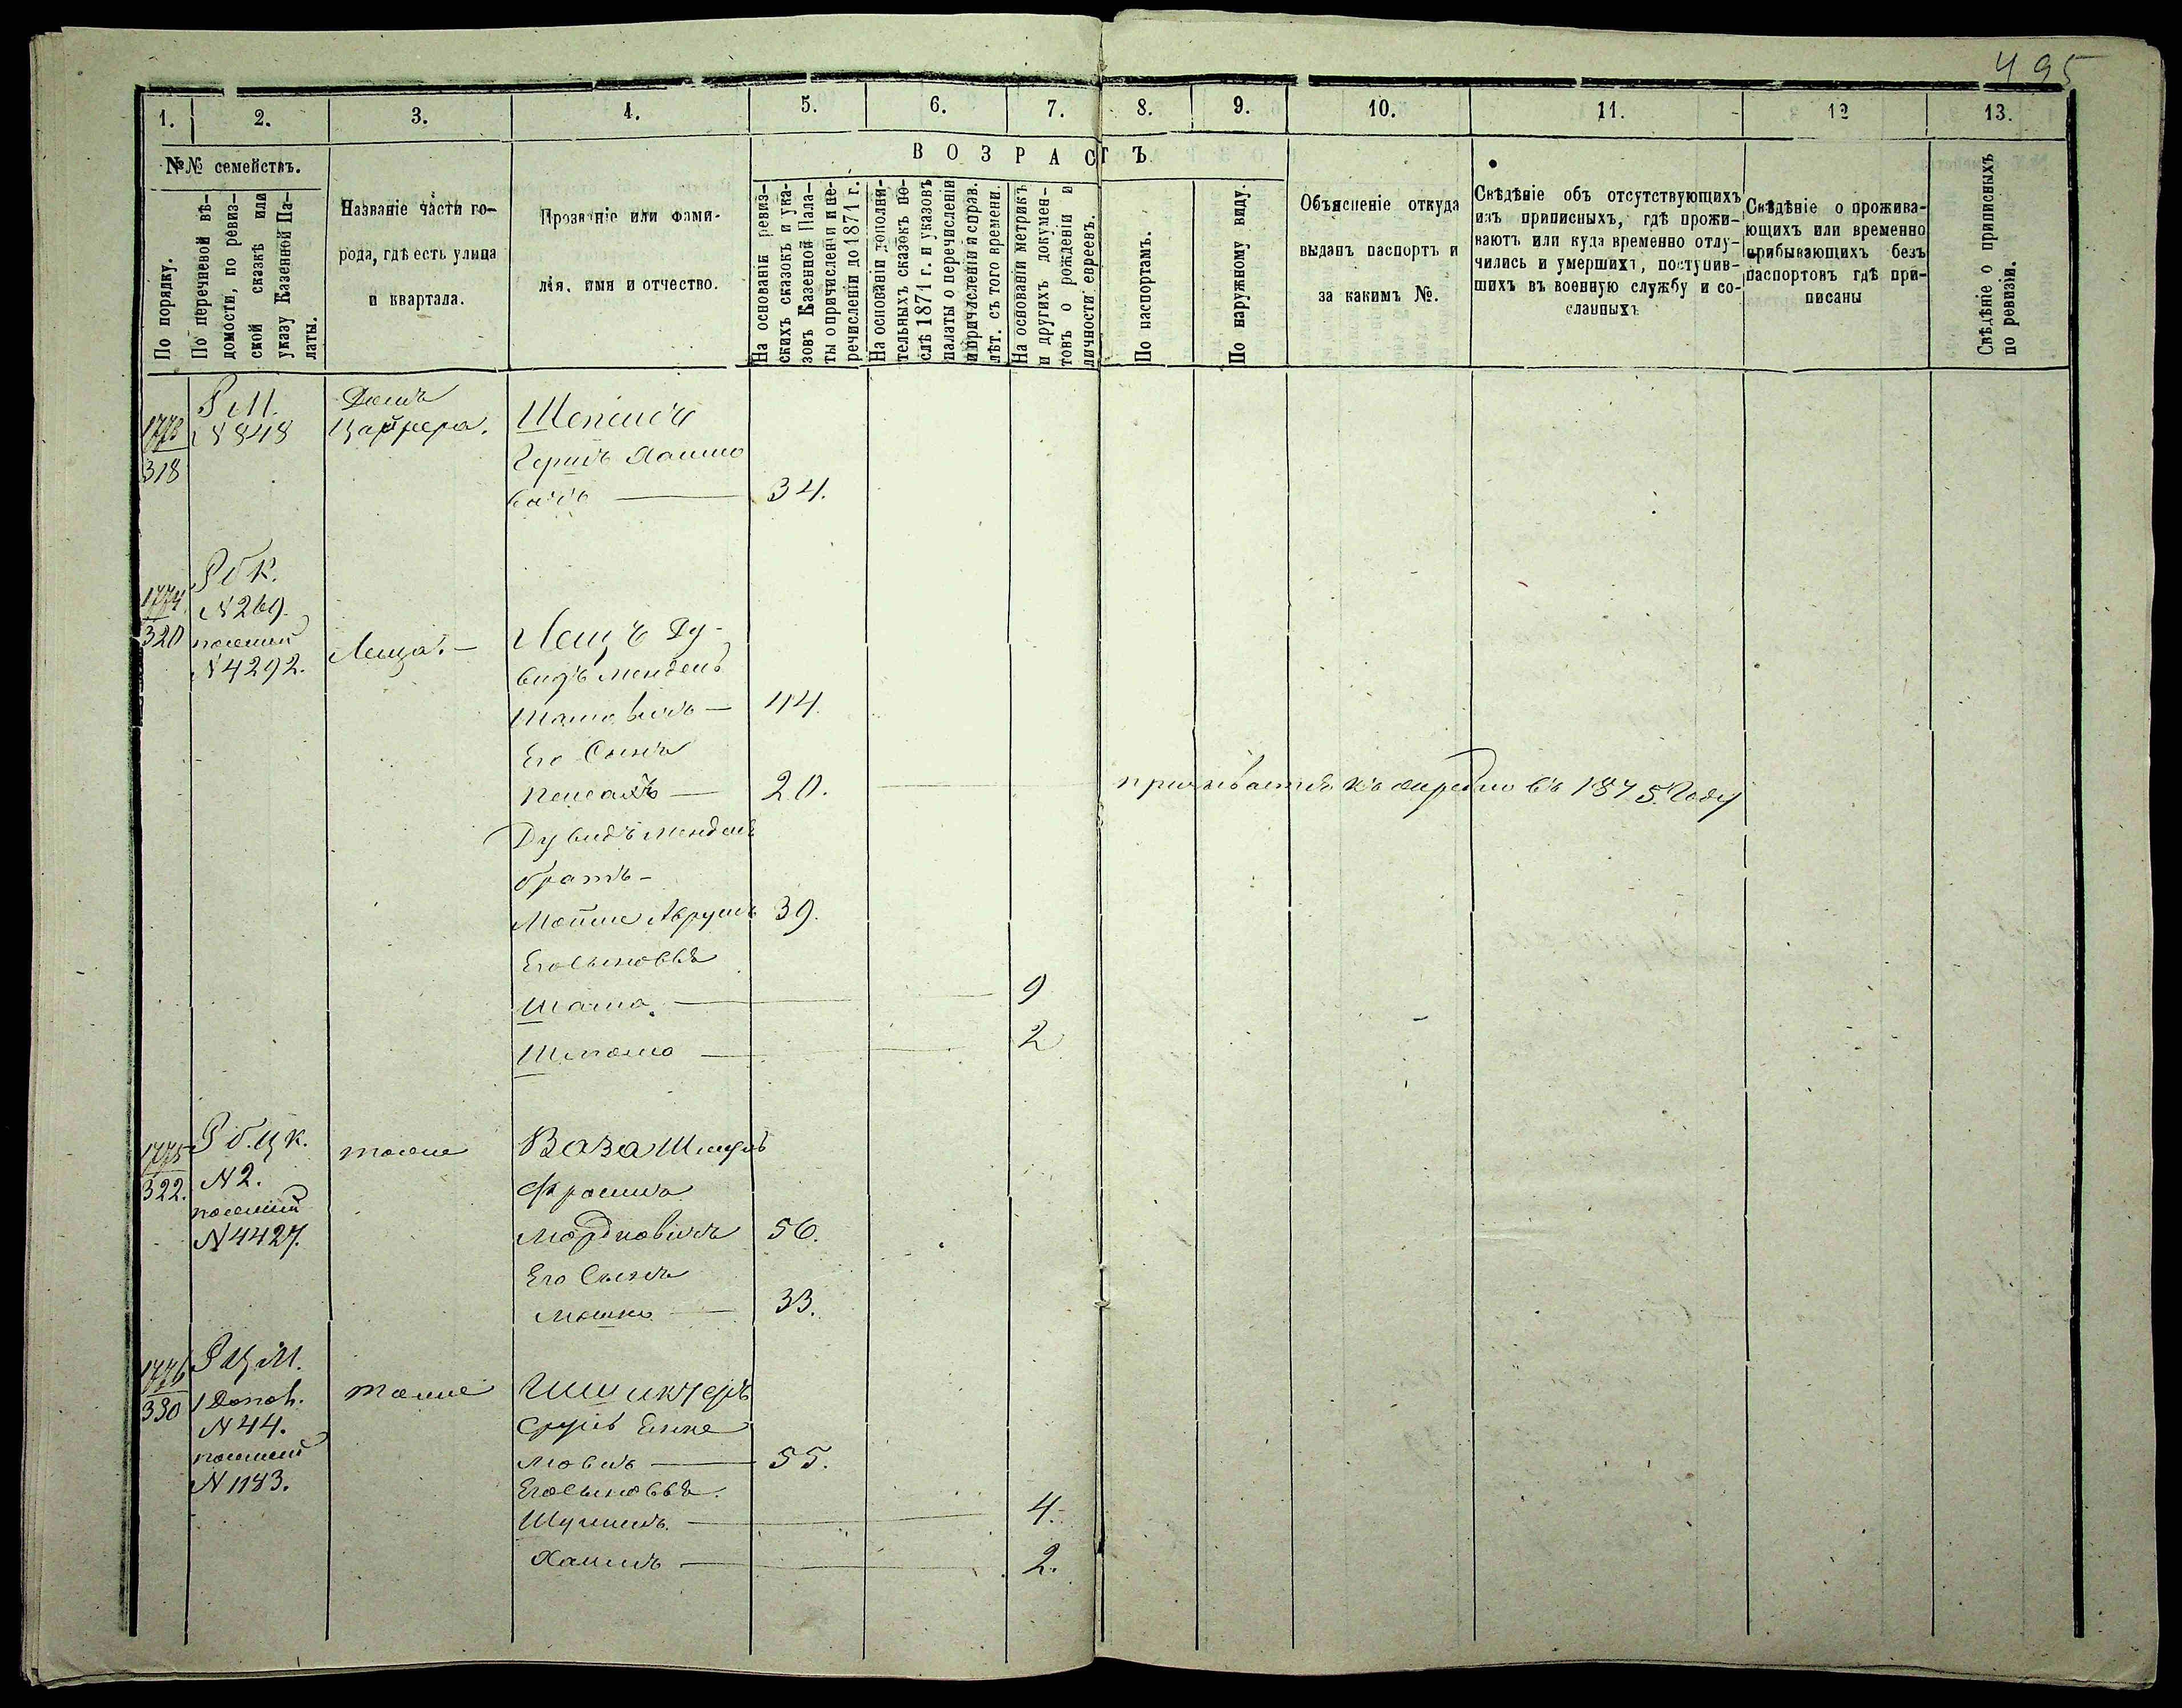 495
1. 2. 3. 4. 5. 6. 7. 8. 9. 10. 11. 12 13.
№№ семействъ.
По порядку.
По перечневой вѣ-
домости, по ревиз-
ской сказкѣ или
указу Казенной Па-
латы.
Названіе части го-
рода, гдѣ есть улица
и квартала.
Прозваніе или фами-
лія, имя и отчество.
ВОЗРАСТЪ
На основаніи ревиз-
скихъ сказокъ и ука-
зовъ Казенной Пала-
ты о причисленіи и пе-
речисленіи до 1871 г.
На основаніи дополни-
тельныхъ сказокъ по-
слѣ 1871 г. и указовъ
палаты о перечисленіи
и причисленіи и справ.
лѣт. съ того времени.
На основаніи метрикъ
и другихъ докумен-
товъ о рожденіи и
личности евреевъ.
По паспортамъ.
По наружному виду.
Объясненіе откуда
выданъ паспортъ и
за какимъ №.
Свѣдѣніе объ отсутствующихъ
изъ приписныхъ, гдѣ прожи-
ваютъ или куда временно отлу-
чились и умершихъ, поступив-
шихъ въ военную службу и со-
сланныхъ
Свѣдѣніе о прожива-
ющихъ или временно
прибывающихъ безъ
паспортовъ гдѣ при-
писаны
Свѣдѣніе о приписныхъ
по ревизіи.
1773
318
Р М.
N 848
Домъ
34.
1774
320
Р б К.
N 269.
N 4292.
Леща. —
Лещъ Ду-
видъ Мендель
44.
Его Сынъ
Пейсахъ — 20.
призывается къ жеребью въ 1875 Году
Дувидъ Менделя
братъ —
Мойше Аврумъ 39.
Его сыновья
9
2
1775
322.
Р б. Ц К.
N 2.
N 4427.
тоже
Ваза
Мордковичъ 56.
Его Сынъ
Мошко — 33.
1776
330
Р Ц М.
1 Допол.
N 44.
N 1183.
тоже
Сруль
55.
Его сыновья.
4.
Хаимъ — 2.